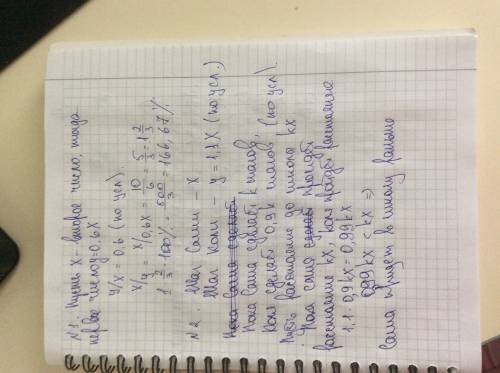 N1. Пусть x - второе число, тогда
первое число = 0,6x
y/x = 0,6 (по усл)
x/y = x/0,6x = 10/6 = 5/3 = 1 2/3
1 2/3 · 100% = 500/3 = 166,67%.
N2. Шаг Саши - x
Шаг Коли - y = 1,1x (по усл.)
Пока Саша сделает k шагов,
Коля сделает 0,9k шагов (по усл).
Пусть расстояние до школы kx
Пока Саша пройдёт
расстояние kx, Коля пройдёт расстояние
1,1 · 0,9kx = 0,99kx
0,99kx < kx =>
Саша придет в школу раньше